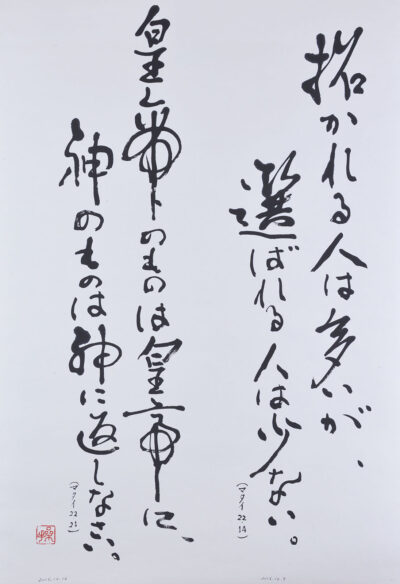 招かれる人は多いが、
選ばれる人は少ない。
(マタイ22 14)
皇帝のものは皇帝に、
神のものは神に返しなさい。
(マタイ22 21)